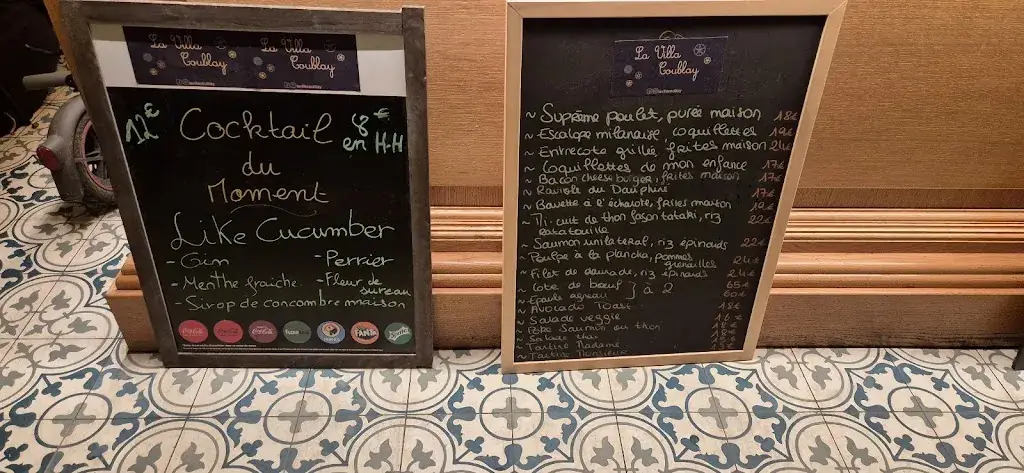 La Villa Coublay
La Villa Coublay
12€
Cocktail
8€
en H-H
du
Moment
Like Cucumber
- Gin
- Perrier
- Menthe fraiche
- Fleur de sureau
- Sirop de concombre maison
FANTA
Sprite
La Villa
Coublay
~ Suprême poulet, purée maison 18€
~ Escalope milanaise, coquillettes 19€
~ Entrecote grillée, frites maison 24€
~ Coquillettes de mon enfance 17€
~ Bacon cheese burger, frites maison 17€
~ Raviole du Dauphiné 17€
~ Bavette à l'échalote, frites maison 19€
~ Mi-cuit de thon façon tataki, riz 22€
Ratatouille
~ Saumon unilateral, riz épinards 22€
~ Poulpe à la plancha, pommes 24€
grenailles
~ Filet de daurade, riz épinards 24€
~ Cote de boeuf } à 2 65€
~ Epaule agneau 60€
~ Avocado Toast 18€
~ Salade veggie 16€
~ Poke Saumon ou thon
~ Salade thai
~ Tartine Madame
~ Tartine Monsieur